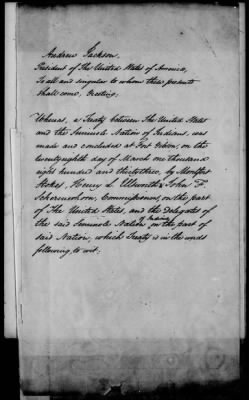 Andrew Jackson,
President of The United States of America,
To all and singular to whom these presents
shall come, Greeting,
Whereas, a Treaty between The United States
and the Seminole Nation of Indians, was
made and concluded at Fort Gibson, on the
twentyeighth day of March one thousand
eight hundred and thirtythree, by Montfort
Stokes, Henry L. Ellsworth & John F.
Schermerhorn, Commissioners on the part
of The United States, and the Delegates of
the said Seminole Nation of Indians on the part of
said Nation, which Treaty is in the words
following, to wit: